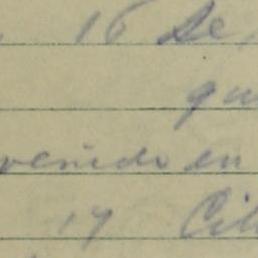 16 de
qu
venido en
17 Cil